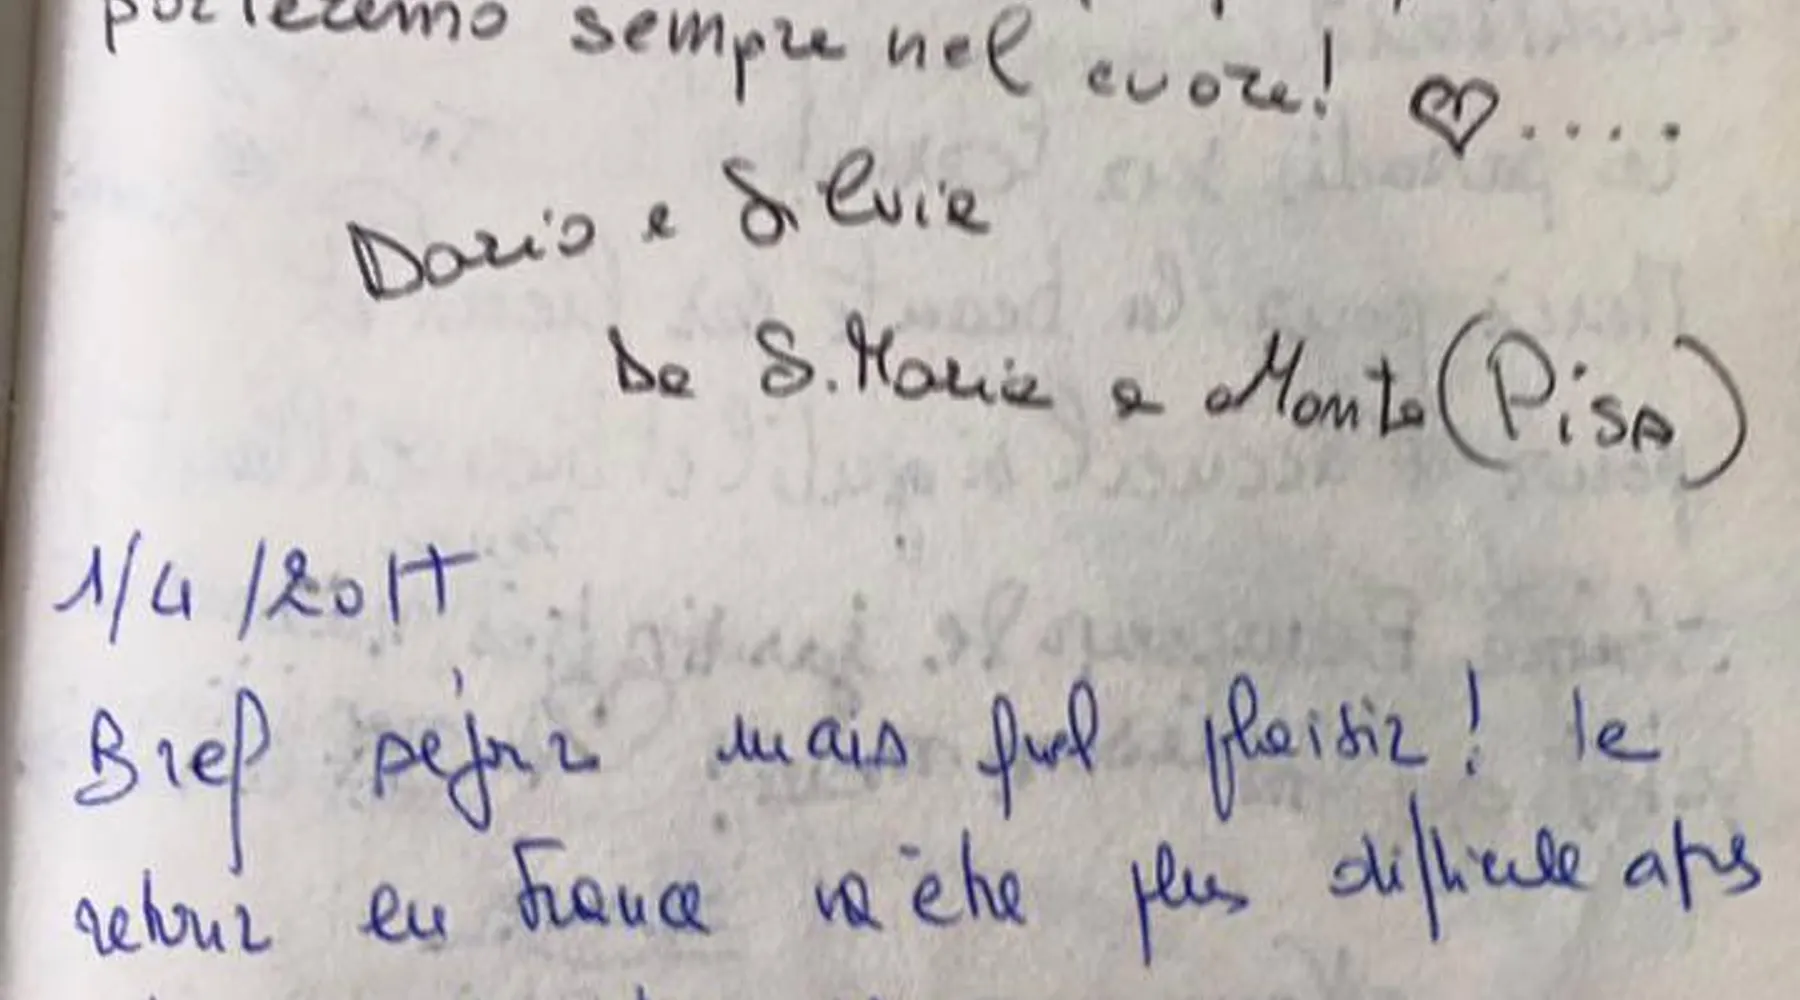 porteremo sempre nel cuore! ♡....
Dario e Silvia
Da S. Maria a Monte (PISA)
1/4/2017
Bref séjour mais quel plaisir! le
retour en France va être plus difficile après